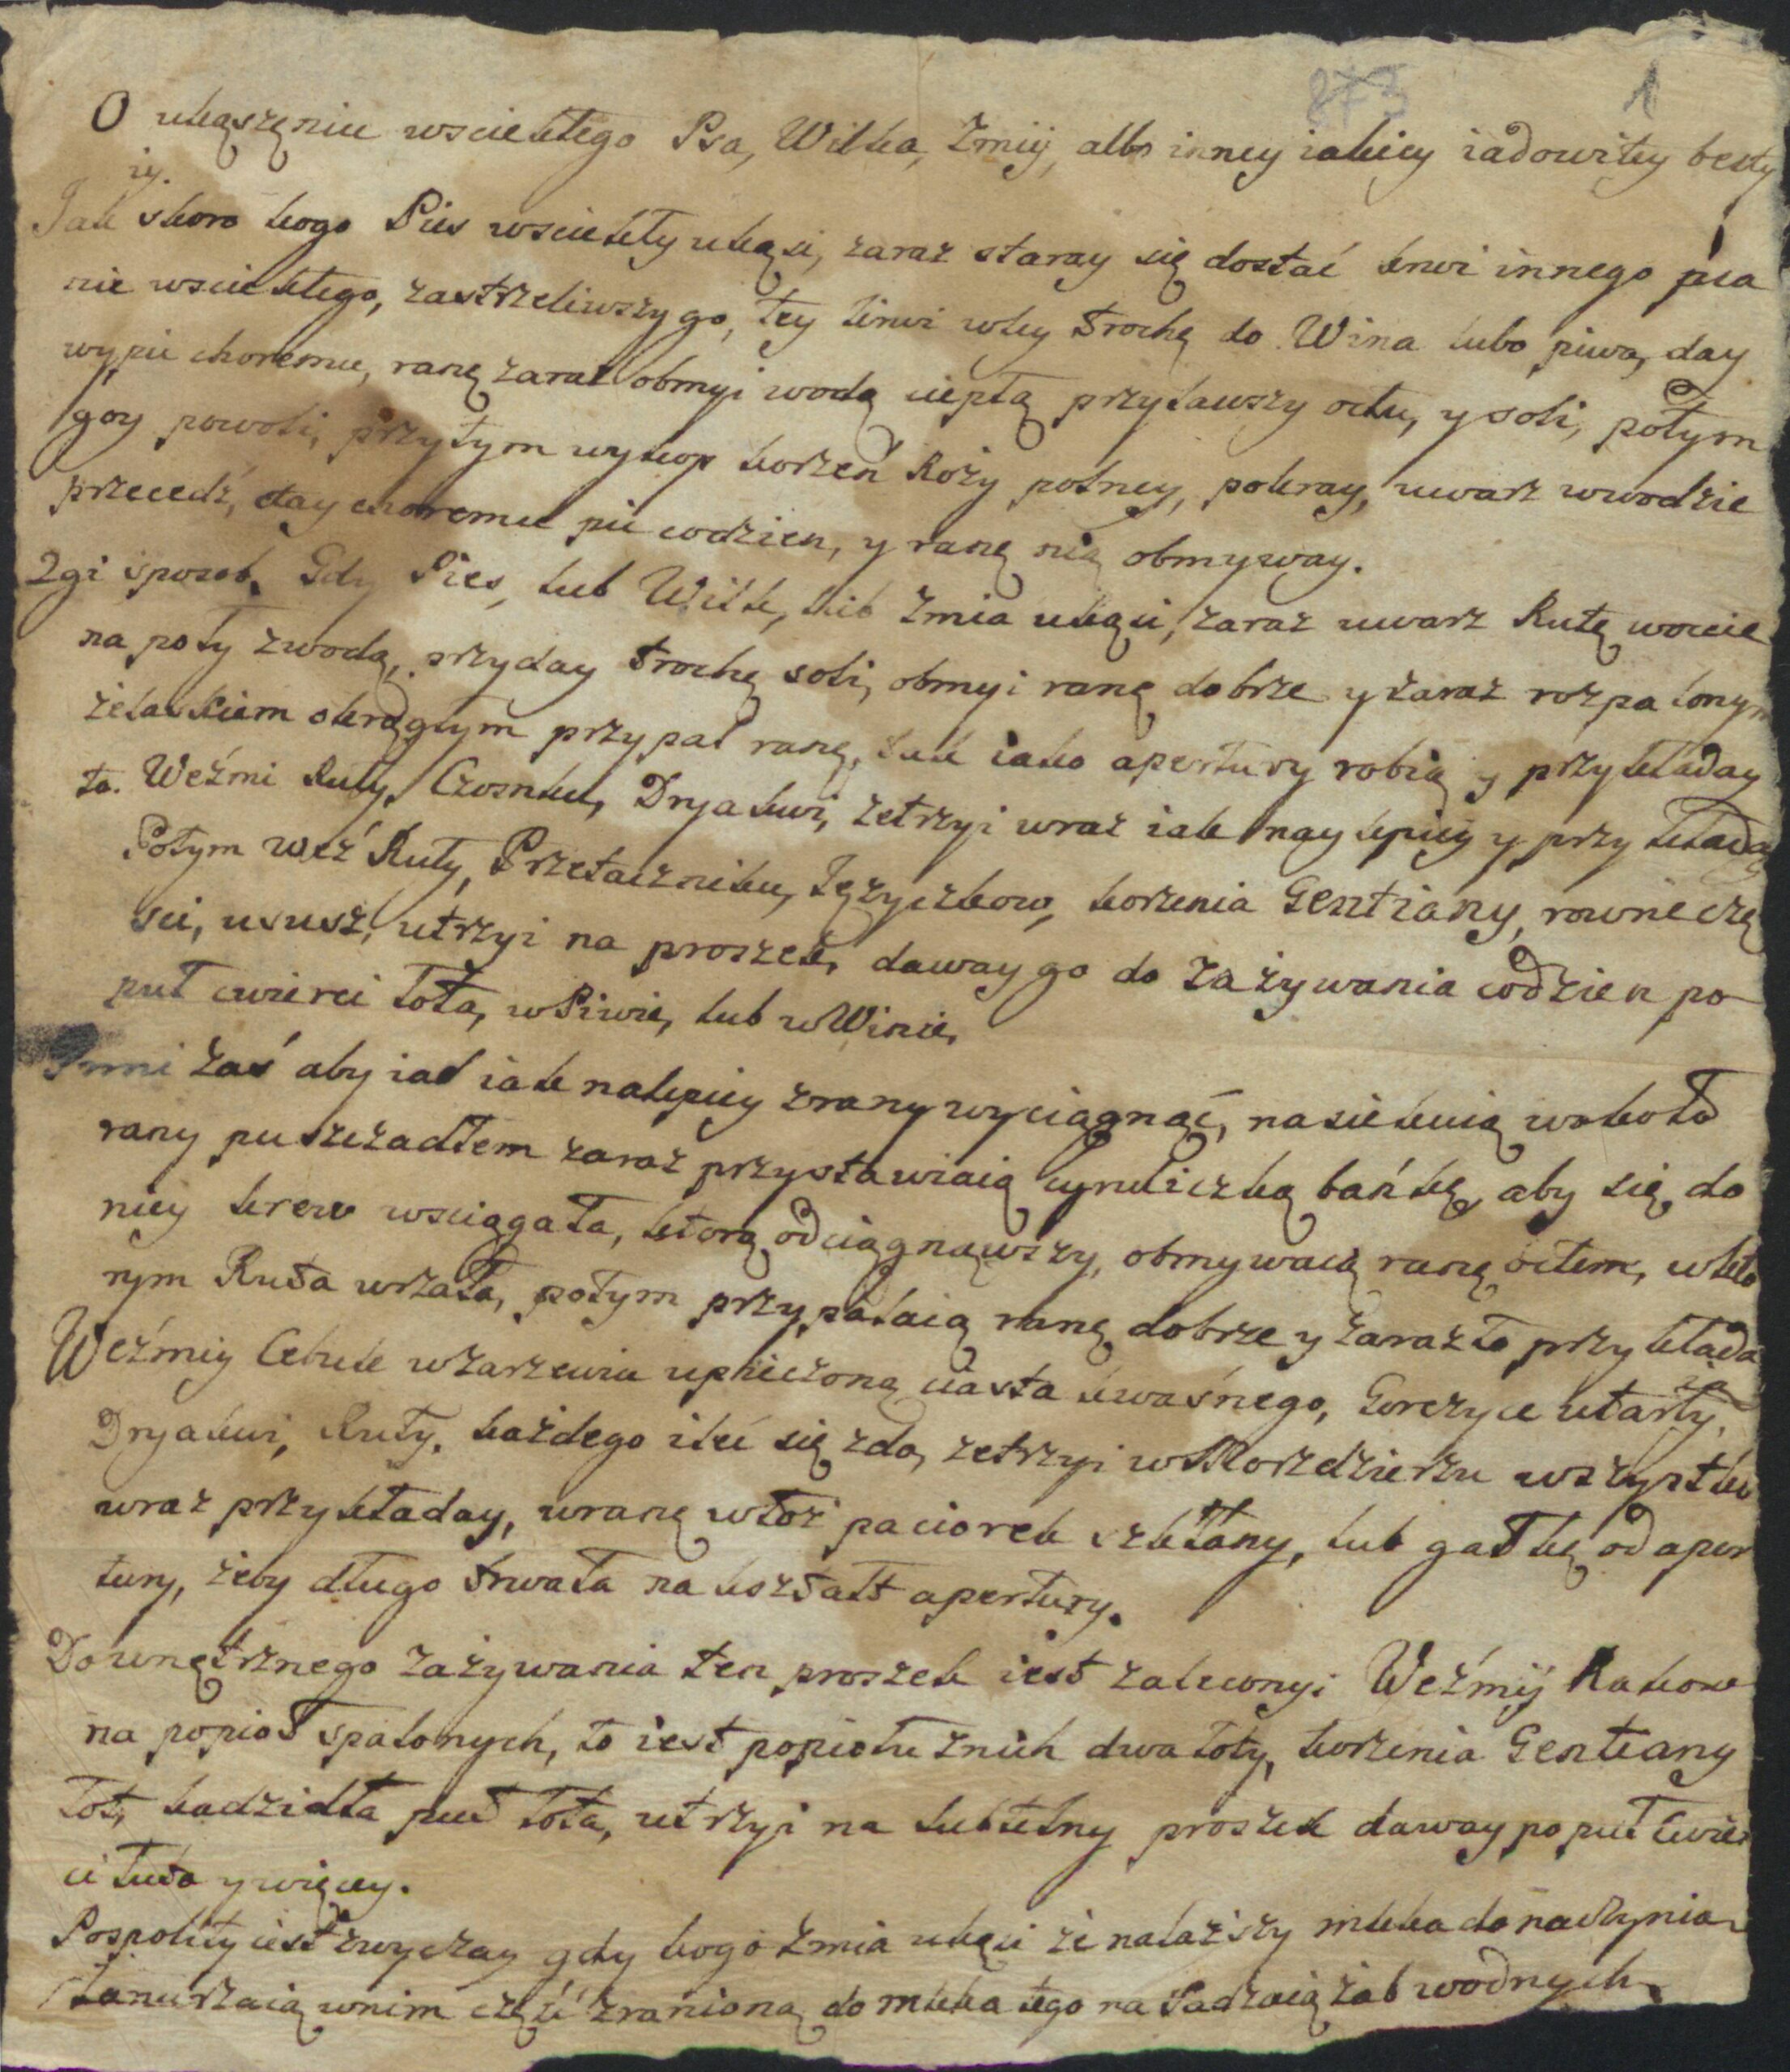 873 1
O ukąszęniu wsciekłego Psa, Wilka, Zmiÿ, albo inney iakiey iadowitey besty
iy.
Jak skoro kogo Pies wsciekły ukąsi, zaraz staray się dostać krwi innego psa
nie wsciekłego, zastrzeliwszy go, tey krwi wley trochę do Wina lubo piwa, day
wypic choremu, ranę zaraz obmyi wodą ciepłą przylawszy octu, y soli, potym
goy powoli, przytym wykop korzeń Roży polney, pokray, uwarz wwodzie
przecedź, day choremu pic codzien, y ranę nią obmyway.
2gi sposob. Gdy Pies, lub Wilk, lub Zmia ukąsi, zaraz uwarz Rutę wocie
na poły zwodą, przyday trochę soli, obmyi ranę dobrze y zaraz rozpalonym
żelaskiem okrągłym przypal ranę, tak iako apertury robią y przykładay
to. Weźmi Ruty, Czosnku, Dryakwi, zetrzyi wraz iak naylepiey y przykładay
Potym weź Ruty, Przetaczniku, Języczkow, korzenia Gentiany, rowne czę
sci, ususz, utrzyi na proszek, daway go do zażywania codzien po
puł cwierci łota, wPiwie, lub wWinie,
Inni zaś aby iad iak nalepiey zrany wyciągnąć, nasiekuią wokoło
rany puszczadłem zaraz przystawiaią cyruliczką bańkę, aby się do
niey krew wsciągała, ktorą odciągnąwszy, obmywaią ranę octem, wkto
rym Ruta wrzała, potym przypalaią ranę dobrze y zaraz to przykłada
ią
Weźmiy Cebule wzarzewiu upieczoną ciasta kwaśnego, Gorczyce utarty,
Dryakwi, Ruty, każdego ileć się zda, zetrzyi wMozdzierzu wszystko
wraz przykładay, wranę włoż paciorek szklany, lub gałkę od aper
tury, żeby długo trwała na kształt apertury.
Downętrznego zażywania ten proszek iest zalecony: Weźmiÿ Rakow
na popioł spalonych, to iest popiołu znich dwa łoty, korzenia Gentiany
łot, kadzidła puł łota, utrzyi na subtelny proszek daway po puł cwier
ci łuta y więcey.
Pospolity iest zwyczay gdy kogo żmia ukąsi że nalaższy mleka do naczynia
zanurzaią wnim część zranioną do mleka tego nasadzaią żab wodnych.